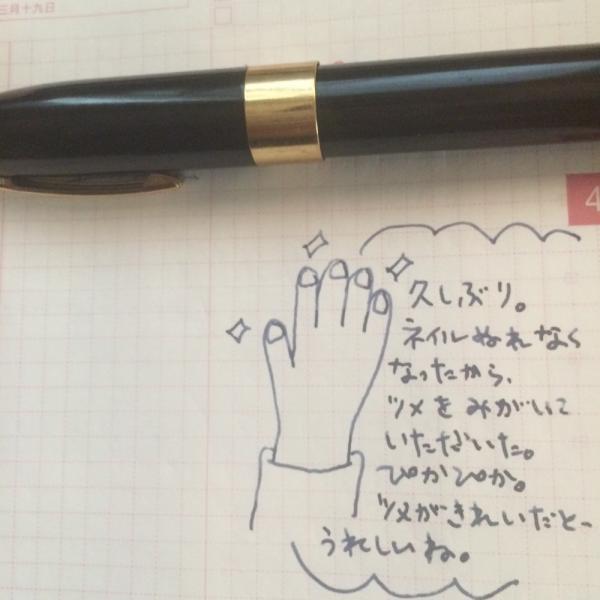 三月十九日
4
久しぶり。
ネイルぬれなく
なったから、
ツメをみがいて
いただいた。
ぴかぴか。
ツメがきれいだと
うれしいね。